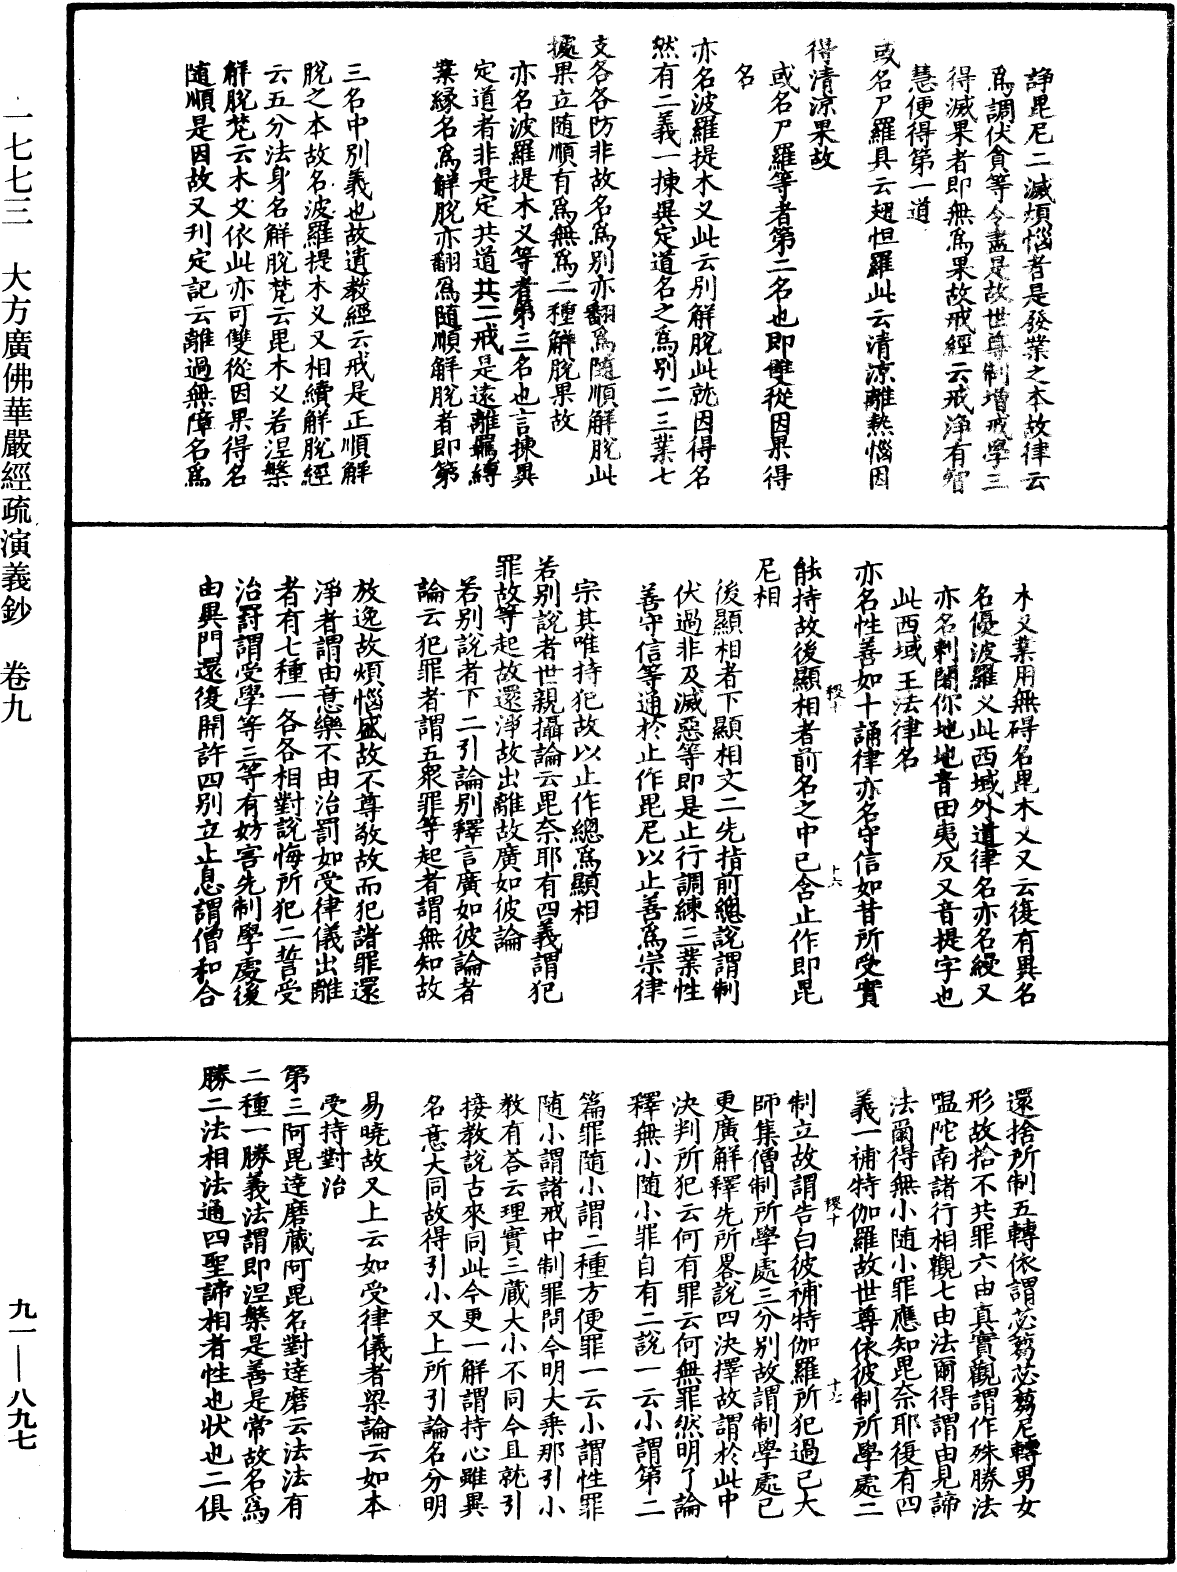 諍毘尼二滅煩惱者是發業之本故律云
爲調伏貪等令盡是故世尊制增戒學三
得滅果者即無爲果故戒經云戒淨有智
慧便得第一道
或名尸羅具云翅怛羅此云清涼離熱惱因
得清涼果故
或名尸羅等者第二名也即雙從因果得
名
亦名波羅提木叉此云別解脫此就因得名
然有二義一揀異定道名之爲別二三業七
支各各防非故名爲別亦翻爲随順解脫此
據果立随順有爲無爲二種解脫果故
亦名波羅提木叉等者第三名也言揀異
定道者非是定共道共二戒是遠離羂縛
業緣名爲解脫亦翻爲随順解脫者即第
三名中別義也故遺教經云戒是正順解
脫之本故名波羅提木叉又相續解脫經
云五分法身名解脫梵云毘木叉若涅槃
解脫梵云木叉依此亦可雙從因果得名
随順是因故又刊定記云離過無障名爲
木叉業用無碍名毘木叉又云復有異名
名優波羅叉此西域外道律名亦名縵叉
亦名刺闍你地地音田夷反又音提字也
此西域王法律名
亦名性善如十誦律亦名守信如昔所受實
能持故後顯相者前名之中已含止作即毘
尼相
後顯相者下顯相文二先指前總說謂制
伏過非及滅惡等即是止行調練三業性
善守信等通於止作毘尼以止善爲宗律
宗其唯持犯故以止作總爲顯相
若別說者世親攝論云毘奈耶有四義謂犯
罪故等起故還淨故出離故廣如彼論
若別說者下二引論別釋言廣如彼論者
論云犯罪者謂五衆罪等起者謂無知故
放逸故煩惱盛故不尊敬故而犯諸罪還
淨者謂由意樂不由治罰如受律儀出離
者有七種一各各相對說悔所犯二誓受
治罸謂受學等三等有妨害先制學處後
由異門還復開許四別立止息謂僧和合
還捨所制五轉依謂苾蒭苾蒭尼轉男女
形故捨不共罪六由真實觀謂作殊勝法
嗢陀南諸行相觀七由法爾得謂由見諦
法爾得無小随小罪應知毘奈耶復有四
義一補特伽羅故世尊依彼制所學處二
制立故謂告白彼補特伽羅所犯過已大
師集僧制所學處三分別故謂制學處已
更廣解釋先所畧說四決擇故謂於此中
決判所犯云何有罪云何無罪然明了論
釋無小随小罪自有二說一云小謂第二
篇罪随小謂二種方便罪一云小謂性罪
随小謂諸戒中制罪問今明大乗那引小
教有荅云理實三藏大小不同今且就引
接教說古來同此今更一解謂持心雖異
名意大同故得引小又上所引論名分明
易曉故又上云如受律儀者梁論云如本
受持對治
第三阿毘達磨藏阿毘名對達磨云法法有
二種一勝義法謂即涅槃是善是常故名爲
勝二法相法通四聖諦相者性也狀也二俱
稷十
十六
稷十
十七
一七七三 大方廣佛華嚴經疏演義鈔 卷九
九一——八九七